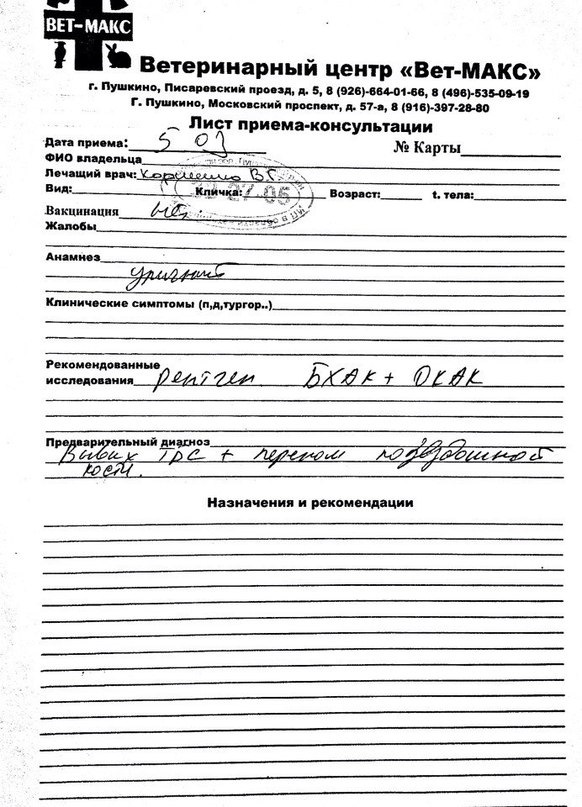 ВЕТ-МАКС
Ветеринарный центр «Вет-МАКС»
г. Пушкино, Писаревский проезд, д. 5, 8 (926)-664-01-66, 8 (496)-535-09-19
Г. Пушкино, Московский проспект, д. 57-а, 8 (916)-397-28-80
Лист приема-консультации
Дата приема: 5 03 № Карты
ФИО владельца
Лечащий врач:
Вид: Кличка: Возраст: t. тела:
Вакцинация
Жалобы
Анамнез
Клинические симптомы (п,д,тургор..)
Рекомендованные
исследования рентген БХАК + ОКАК
Предварительный диагноз
Вывих ТБС + перелом подвздошной
кости.
Назначения и рекомендации